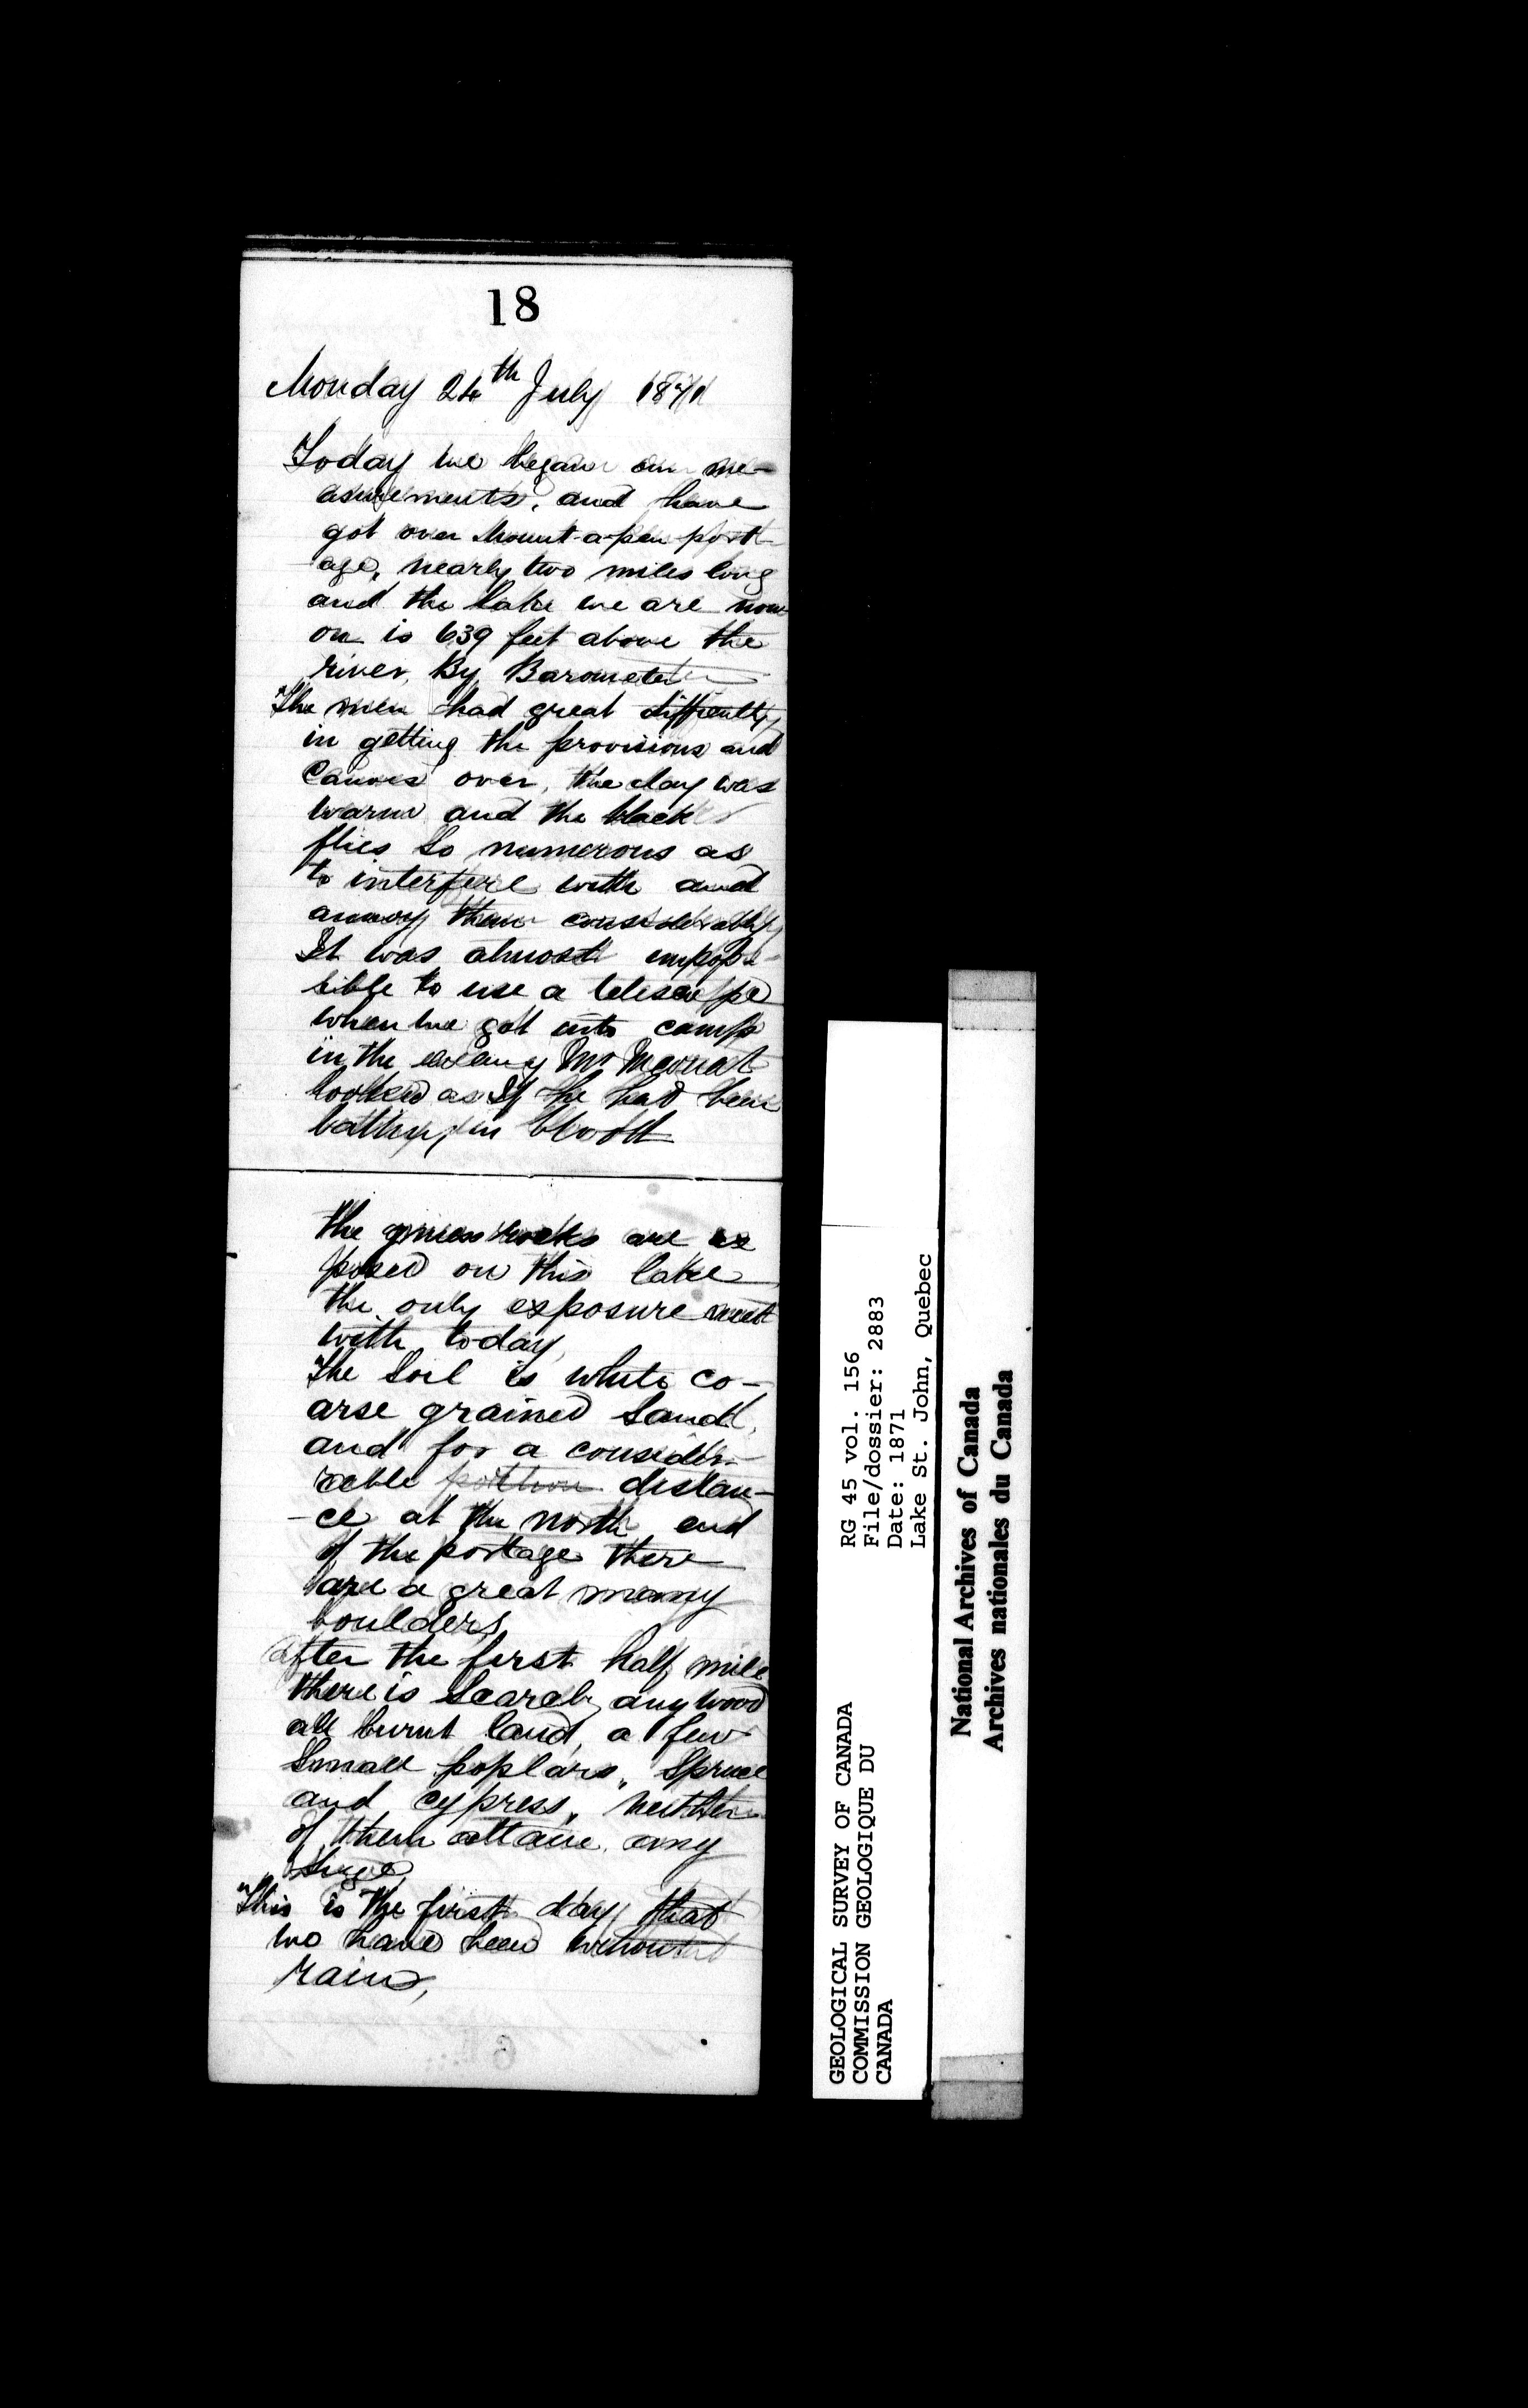 18
Monday 24th July 1871
Today we began our me-
asurements, and have
got over Mount-a-peu port-
age, nearly two miles long
and the lake we are now
on is 639 feet above the
river, By Barometer
The men had great difficulty
in getting the provisions and
Canoes over, the day was
warm and the black
flies so numerous as
to interfere with and
annoy them considerably
It was almost impos-
sible to use a telescope
when we got into camp
in the evening Mr McOuat
looked as If he had been
bathing in blood
the gneiss rocks are ex
posed on this lake
the only exposure meet
with today,
The Soil is white co-
arse grained Sand,
and for a consider-
able portion distan-
-ce at the north end
of the portage there
are a great many
boulders,
after the first half mile
there is Scarcly any wood
all burnt land, a few
Small poplars, Spruce
and cypress, neither
of them attain any
Size,
This is the first day that
we have been without
rain,
RG 45 vol. 156
File/dossier: 2883
Date: 1871
Lake St. John, Quebec
GEOLOGICAL SURVEY OF CANADA
COMMISSION GEOLOGIQUE DU
CANADA
National Archives of Canada
Archives nationales du Canada